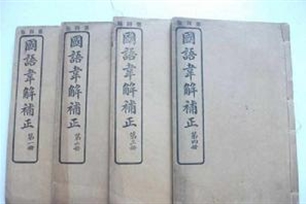 國語韋解補正 第一冊
國語韋解補正 第二冊
國語韋解補正 第三冊
國語韋解補正 第四冊